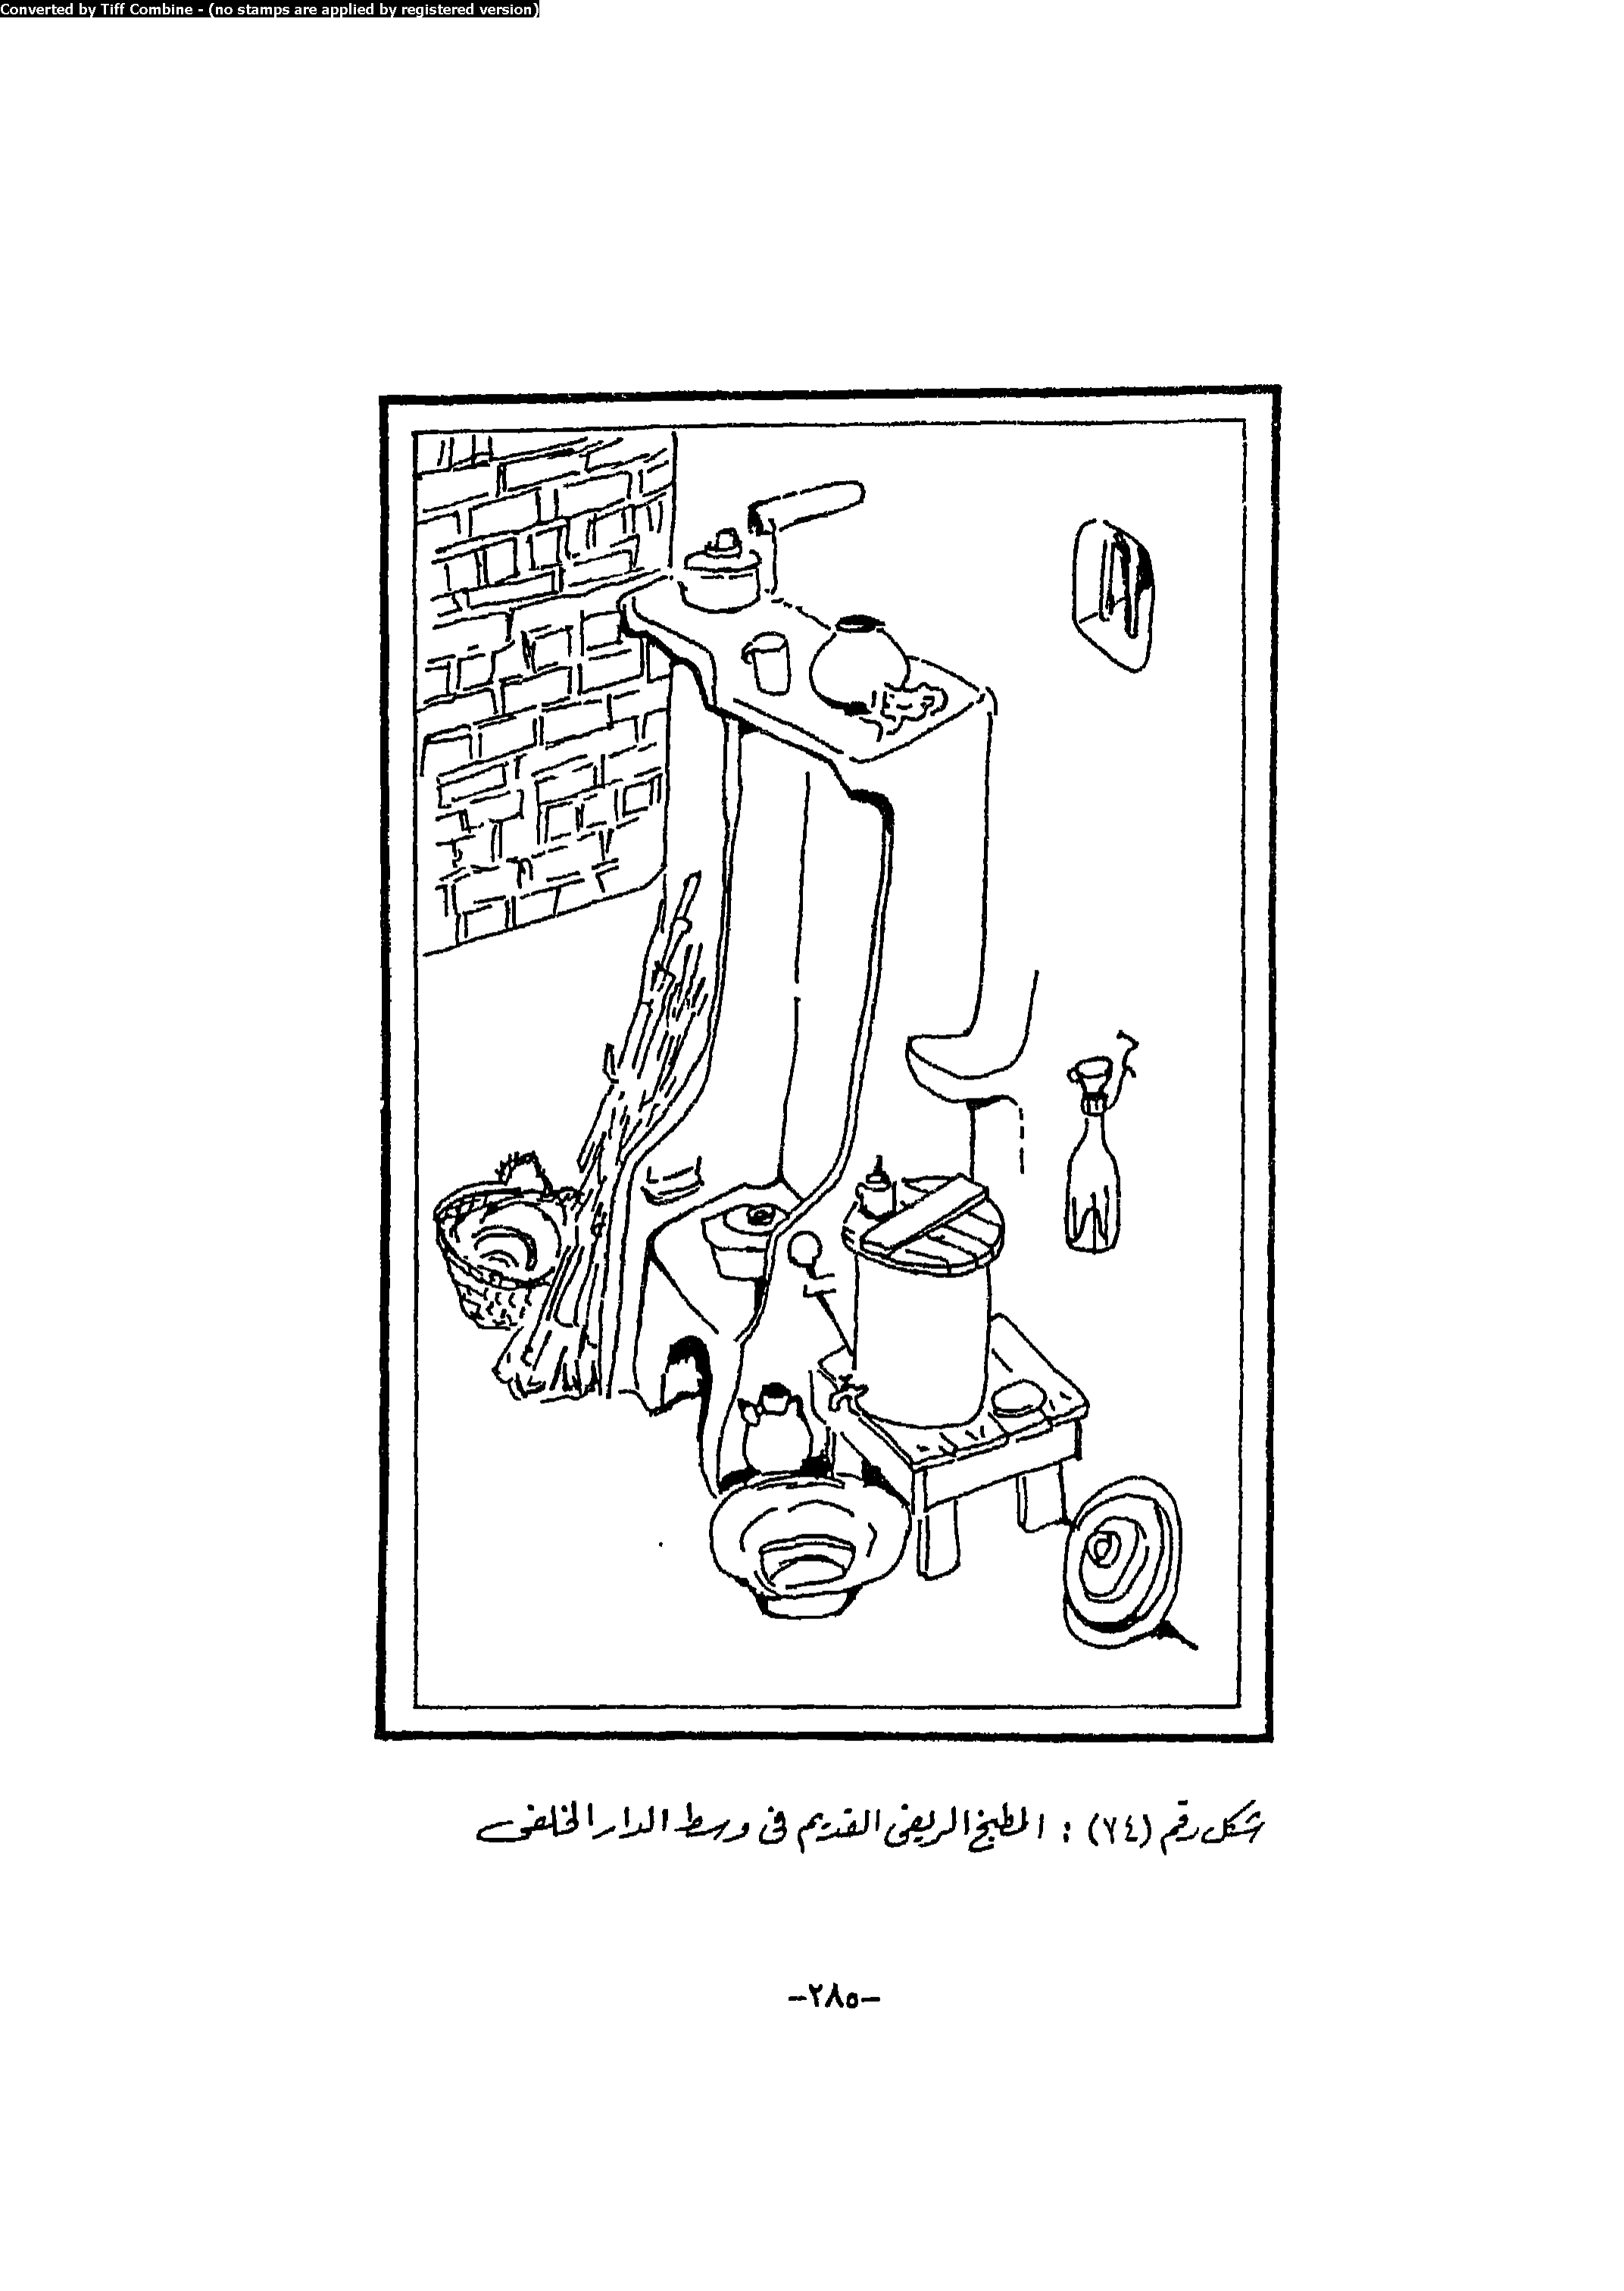 Converted by Tiff Combine - (no stamps are applied by registered version)
شكل رقم (٧٤) : المطبخ الريفى القديم فى وسط الدار الخلفى
-٢٨٥-